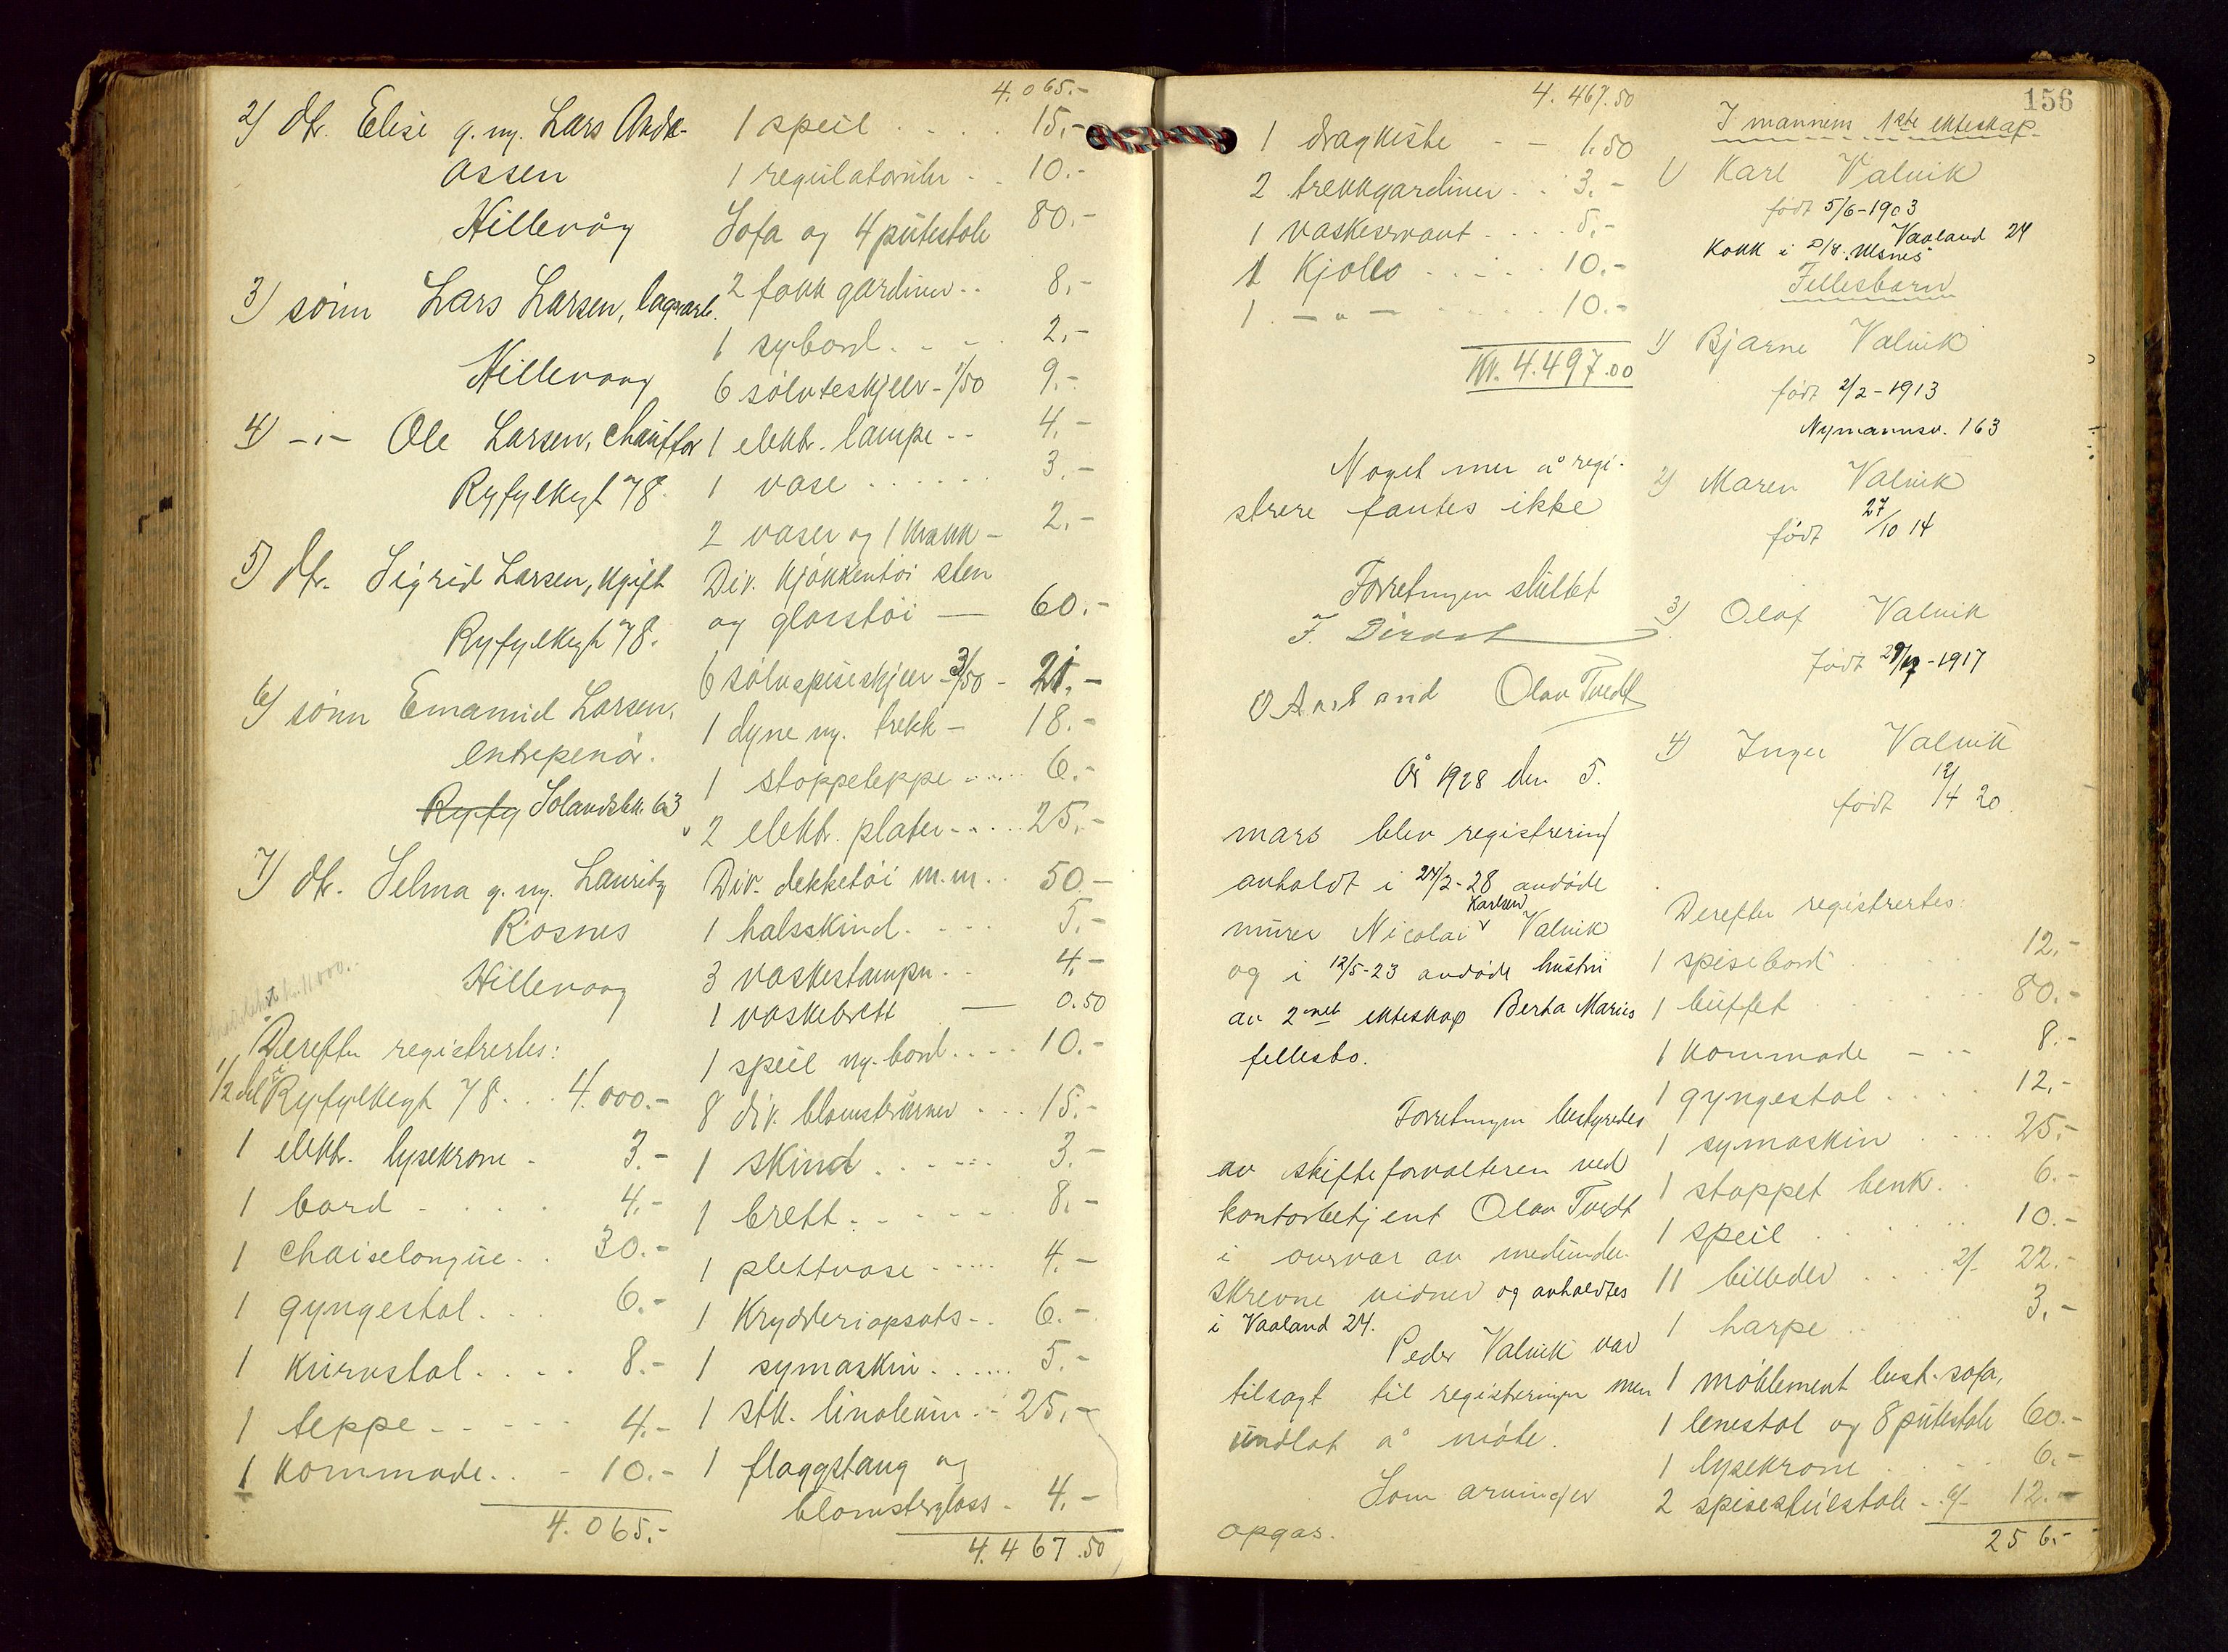 2) dtr. Elise g. m. Lars Andr-
assen
Hillevåg
3) sønn Lars Larsen, lagerarb.
Hillevaag
4) -"- Ole Larsen, chauffør
Ryfylkegt 78.
5) dtr. Sigrid Larsen, ugift
Ryfylkegt 78.
6) sønn Emanuel Larsen,
entrepenør.
Solandsbk. 63
7) dtr. Selma g. m. Lauritz
Rosnes
Hillevaag
Derefter registrertes:
1/2 del i Ryfylkegt 78 . . . 4.000.-
1 elektr. lysekrone - 3.-
1 bord - . . . 4.-
1 chaiselongue . . 30.-
1 gyngestol . . . 6.-
1 kurvstol . . . . 8.-
1 teppe - - - - - 4.-
1 kommode . . - 10.-
4.065.-
4.065.-
1 speil . . . . 15.-
1 regulatoruhr . . 10.-
Sofa og 4 putestole 80.-
2 fakk gardiner . . 8.-
1 sybord . - - . 2.-
6 sølvteskjeer - 1/50 9.-
1 elektr. lampe - - 4.-
1 vase . . . . . . 3.-
2 vaser og 1 krakk - 2.-
Div. kjøkkentøi sten
og glasstøi — 60.-
6 sølvspiseskjeer 3/50 - 21.-
1 dyne m. trekk - 18.-
1 stoppeteppe ...... 6.-
2 elektr. plater - . . . 25.-
Div. dekketøi m.m. . 50.-
1 halsskind . . . . 5.-
3 vaskestamper . . 4.-
1 vaskebrett — 0.50
1 speil m. bord . . . . 10.-
8 div. blomsterurner . . . 15.-
1 skind . . . . . . 3.-
1 brett . - . - - - . 8.-
1 plettvase . . . . . 4.-
1 krydderiopsats - . 6.-
1 symaskin . . . . . . 5.-
1 stk. linoleum . - 25.-
1 flaggstang og
blomsterglass - 4.-
4.467.50
4.467.50
1 dragkiste - - 1.50
2 trekkgardiner . . . 3.-
1 vaskeservant . . . . 5.-
1 Kjole . . . . . 10.-
1 - " - . . . . . 10.-
Kr. 4.497.00
Noget mer å regi-
strere fantes ikke
Forretningen sluttet
Olav Tvedt
År 1928 den 5.
mars blev registrering
avholdt i 24/2-28 avdøde
murer Nicolai Karlsen Valvik
og i 12/5-23 avdøde hustru
av 2net ekteskap Berta Maries
fellesbo.
Forretningen bestyredes
av skifteforvalteren ved
kontorbetjent Olav Tvedt
i overvær av medunder-
skrevne vidner og avholdtes
i Vaaland 24.
Peder Valvik var
tilsagt til registreringen men
undlot å møte.
Som arvinger
opgas.
156
I mannens 1ste ekteskap
1) Karl Valvik
født 5/6-1903
Vaaland 24
Kokk i D/S. "Ulsnes"
Fellesbarn
1) Bjarne Valvik
født 2/2-1913
Nymannsv. 163
2) Maren Valvik
født 27/10 14
3) Olaf Valvik
født -1917
4) Inger Valvik
født 12/4 20.
Derefter registrertes:
1 spisebord . . . 12.-
1 buffet . . . 80.-
1 kommode - - - 8.-
1 gyngestol . . . . 12.-
1 symaskin . . . . 25.-
1 stoppet benk . . 6.-
1 speil . . . . . 10.-
11 billeder . . . 2/- 22.-
1 harpe . . 3.-
1 møblement best. sofa,
1 lenestol og 8 putestole 60.-
1 lysekrone . . . 6.-
2 spisestuestole - 6/- 12.-
256.-